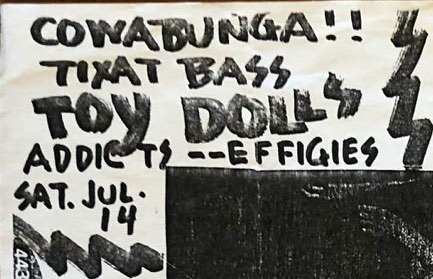 COWABUNGA!!
TIXAT BASS
TOY DOLLS
ADDICTS -- EFFIGIES
SAT. JUL.
14
443